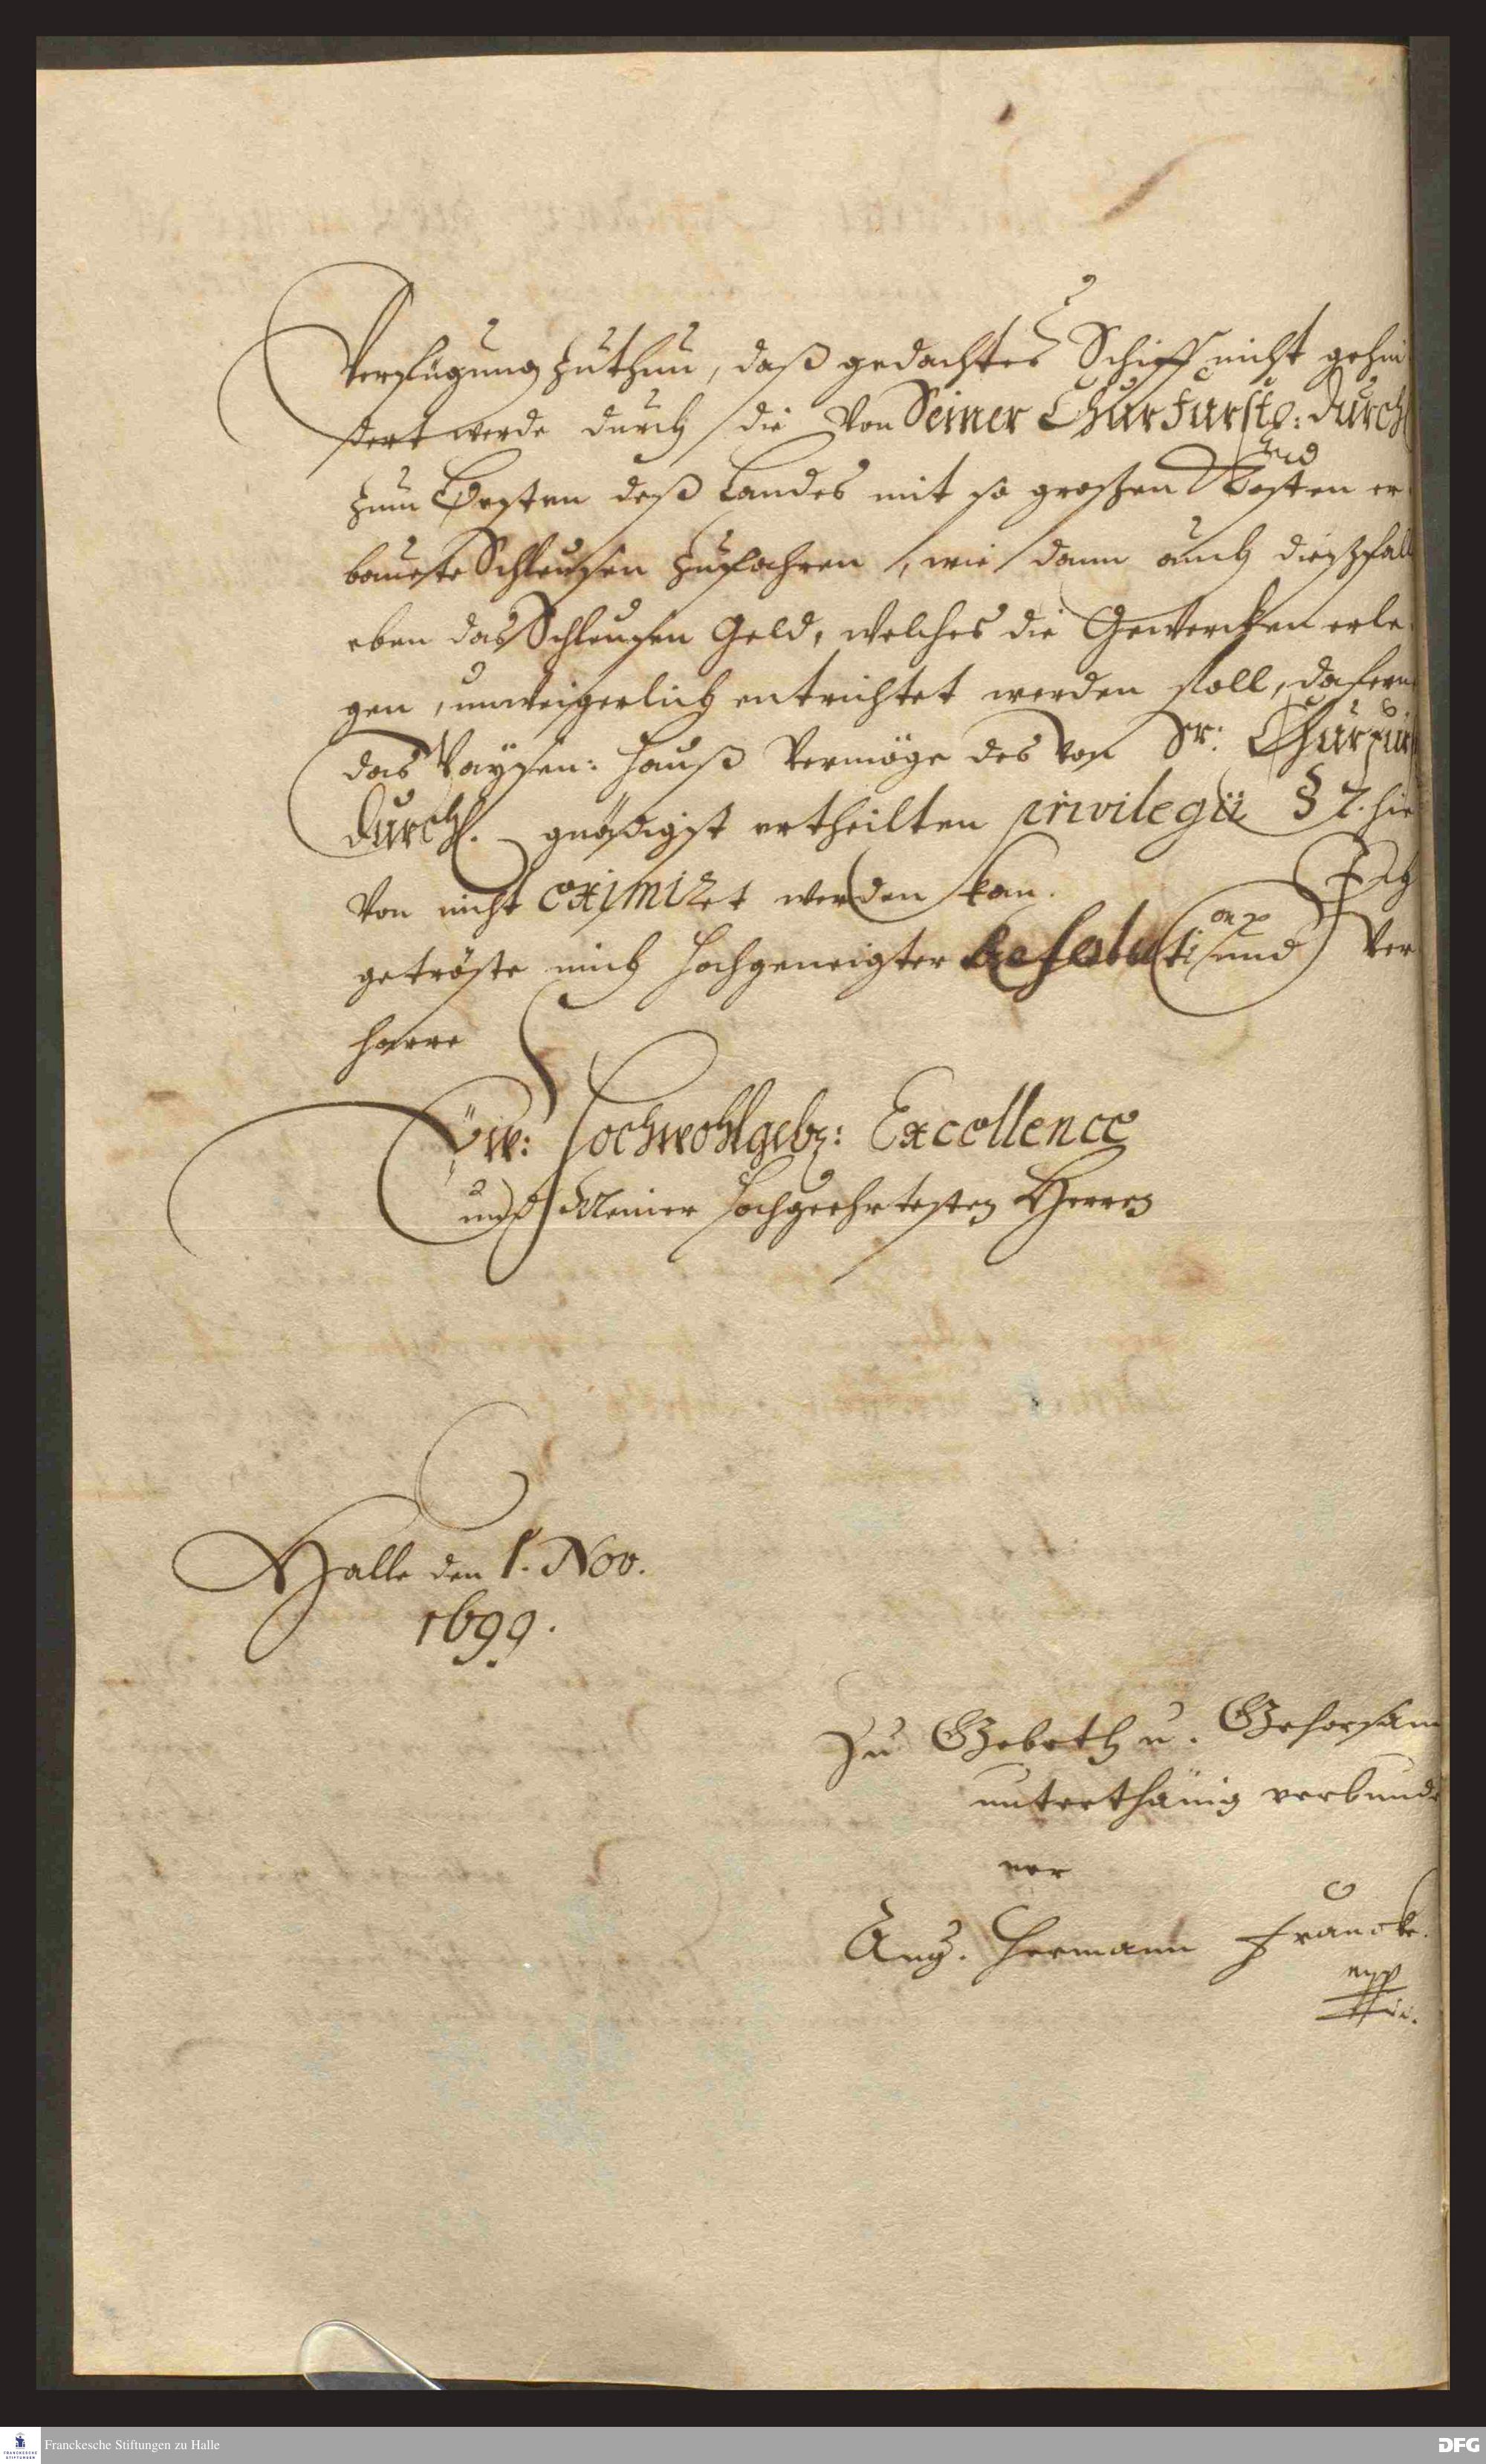 Verfügung zuthun, daß gedachtes Schiff nicht gehin
dert werde durch die von Seiner Churfürstl: Durchl
zum Besten deß Landes mit so großen Kosten er
bauete Schleußen zufahren, wie dann auch dießfalls
eben das Schleußen Geld, welches die Gewercken erle
gen, unweigerlich entrichtet werden soll, dafern
das Waysen: Hauß vermöge des von Sr: Churfürstl
Durchl. gnädigst ertheilten privilegii § 7. hie
von nicht eximiret werden kan. Ich
getröste mich hochgeneigter Resolution und ver
harre
Ew: Hochwohlgeb: Excellence
und Meiner Hochgeehrtesten Herren
Halle den 1. Nov.
1699.
Zu Gebeth u. Gehorsam
unterthänig verbunde
ner
Aug. Hermann Francke.
mpp
Franckesche Stiftungen zu Halle
DFG